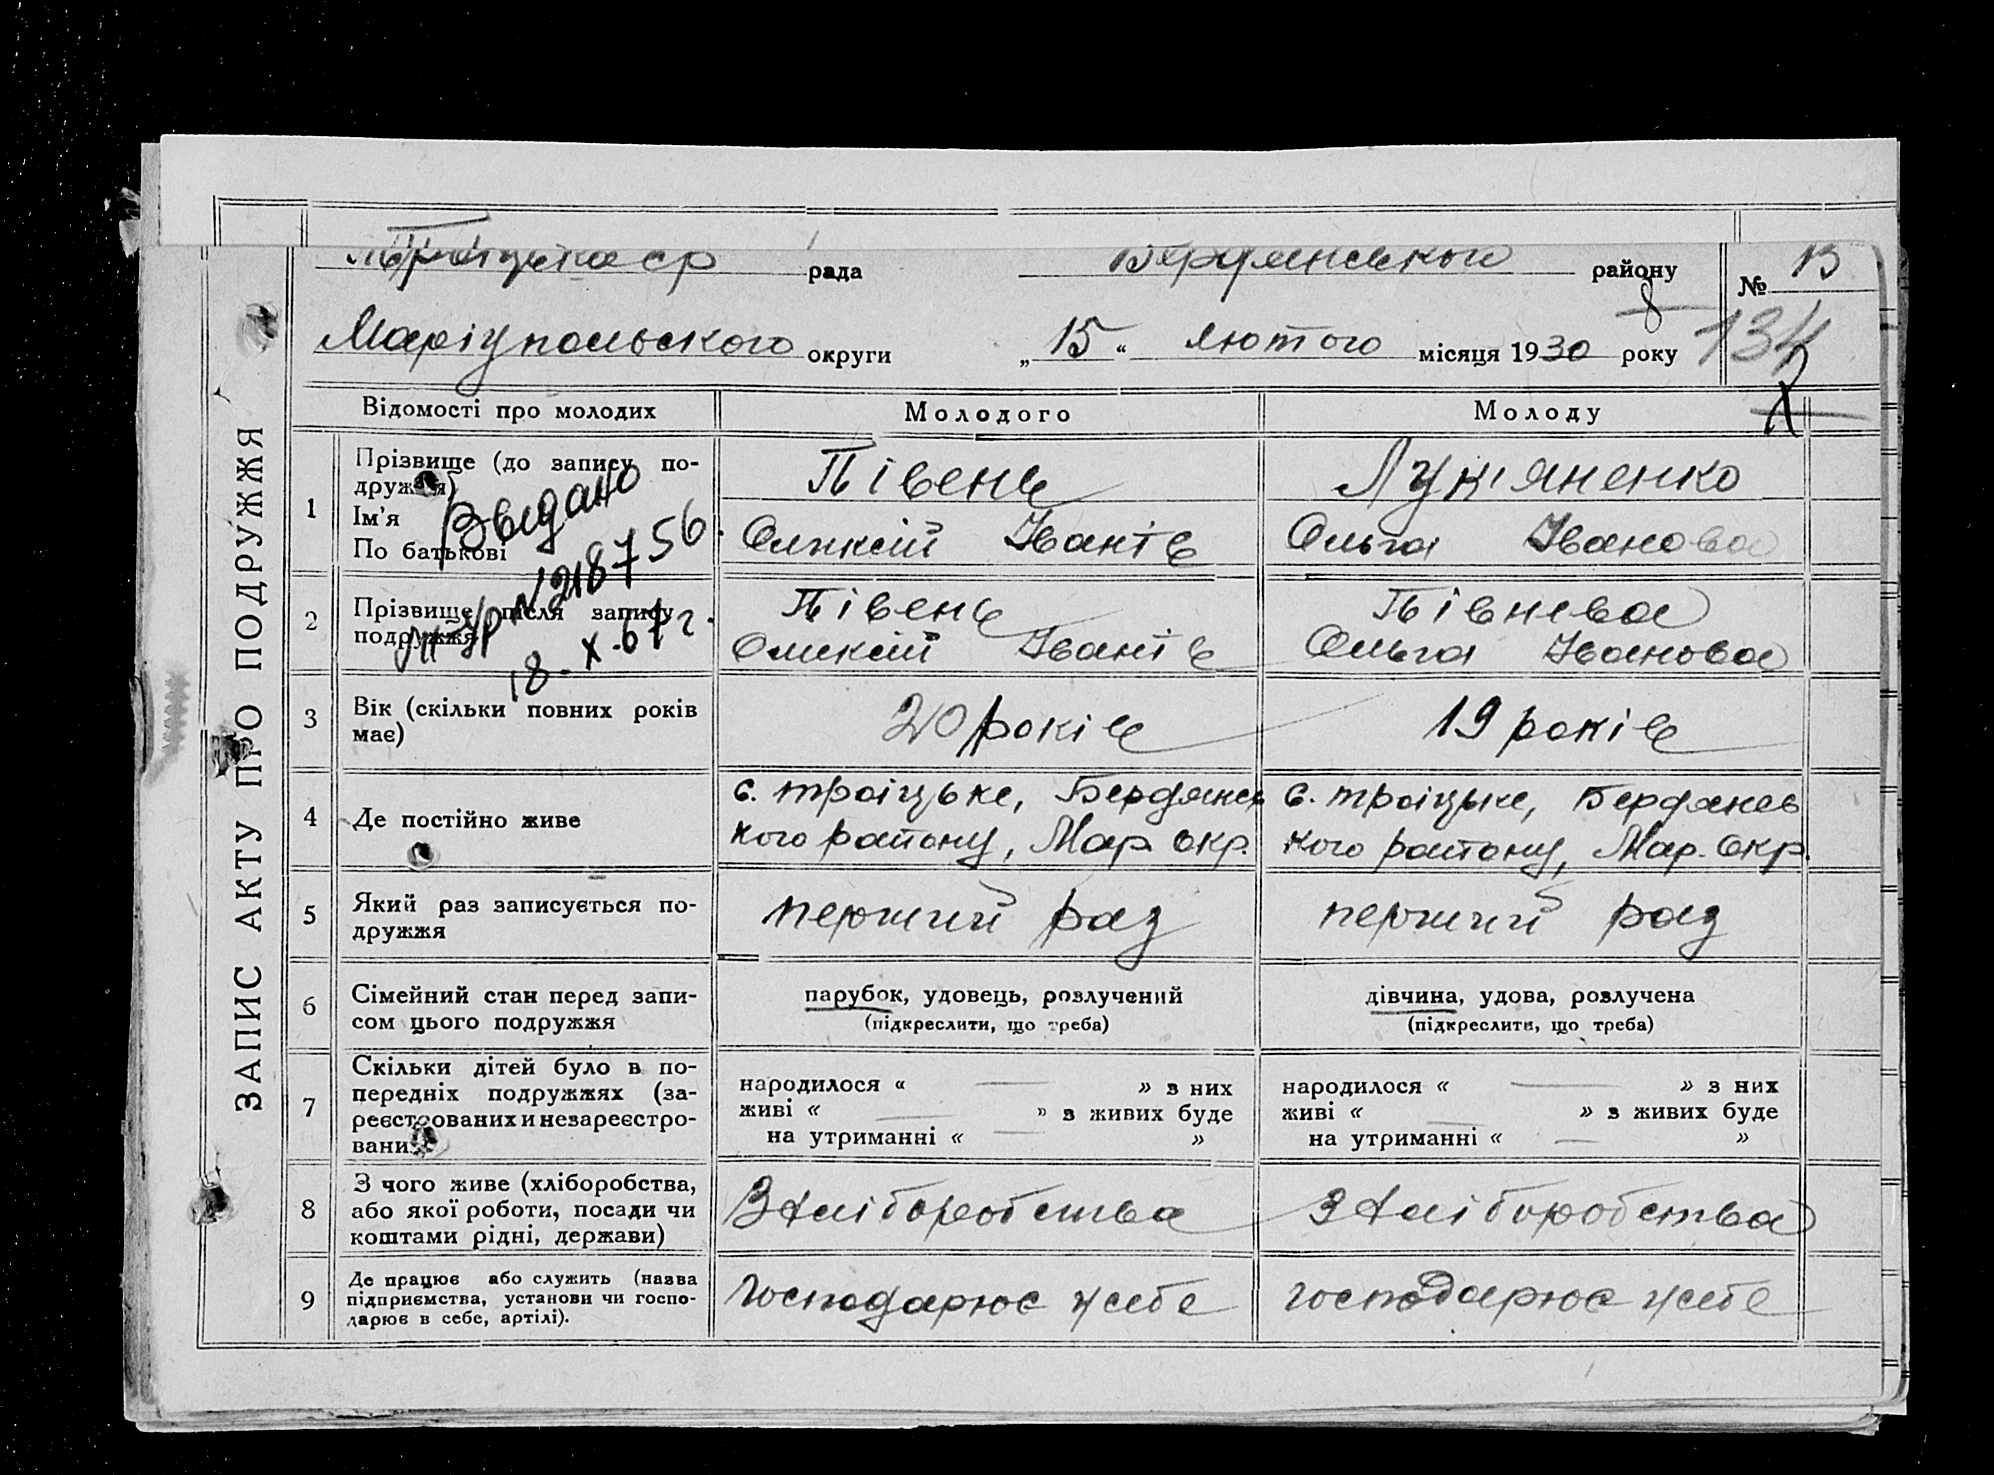 ЗАПИС АКТУ ПРО ПОДРУЖЖЯ
Троіцька ср рада Бердянського району № 13
Маріупольського округи „15“ лютого місяця 1930 року 134
Відомості про молодих Молодого Молоду
1 Прізвище (до запису по-
дружжя)
Ім'я
По батькові
Півень Лук'яненко
Олексій Іванів Ольга Іванова
Выдано
№ 218756
18.X.67 г.
2 Прізвище після запису
подружжя
Півень Півнева
Олексій Іванів Ольга Іванова
3 Вік (скільки повних років
має)
20 років 19 років
4 Де постійно живе
с. Троіцьке, Бердянсь
кого району, Мар. окр.
с. Троіцьке, Бердянсь
кого району, Мар. окр.
5 Який раз записується по-
дружжя
перший раз перший раз
6 Сімейний стан перед запи-
сом цього подружжя
парубок, удовець, розлучений
(підкреслити, що треба)
дівчина, удова, розлучена
(підкреслити, що треба)
7 Скільки дітей було в по-
передніх подружжях (за-
реєстрованих и незареєстро-
ваних)
народилося « — » з них
живі « — » з живих буде
на утриманні « — »
народилося « — » з них
живі « — » з живих буде
на утриманні « — »
8 З чого живе (хліборобства,
або якої роботи, посади чи
коштами рідні, держави)
З хліборобства З хліборобства
9 Де працює або служить (назва
підприємства, установи чи госпо-
дарює в себе, артілі).
господарює у себе господарює у себе